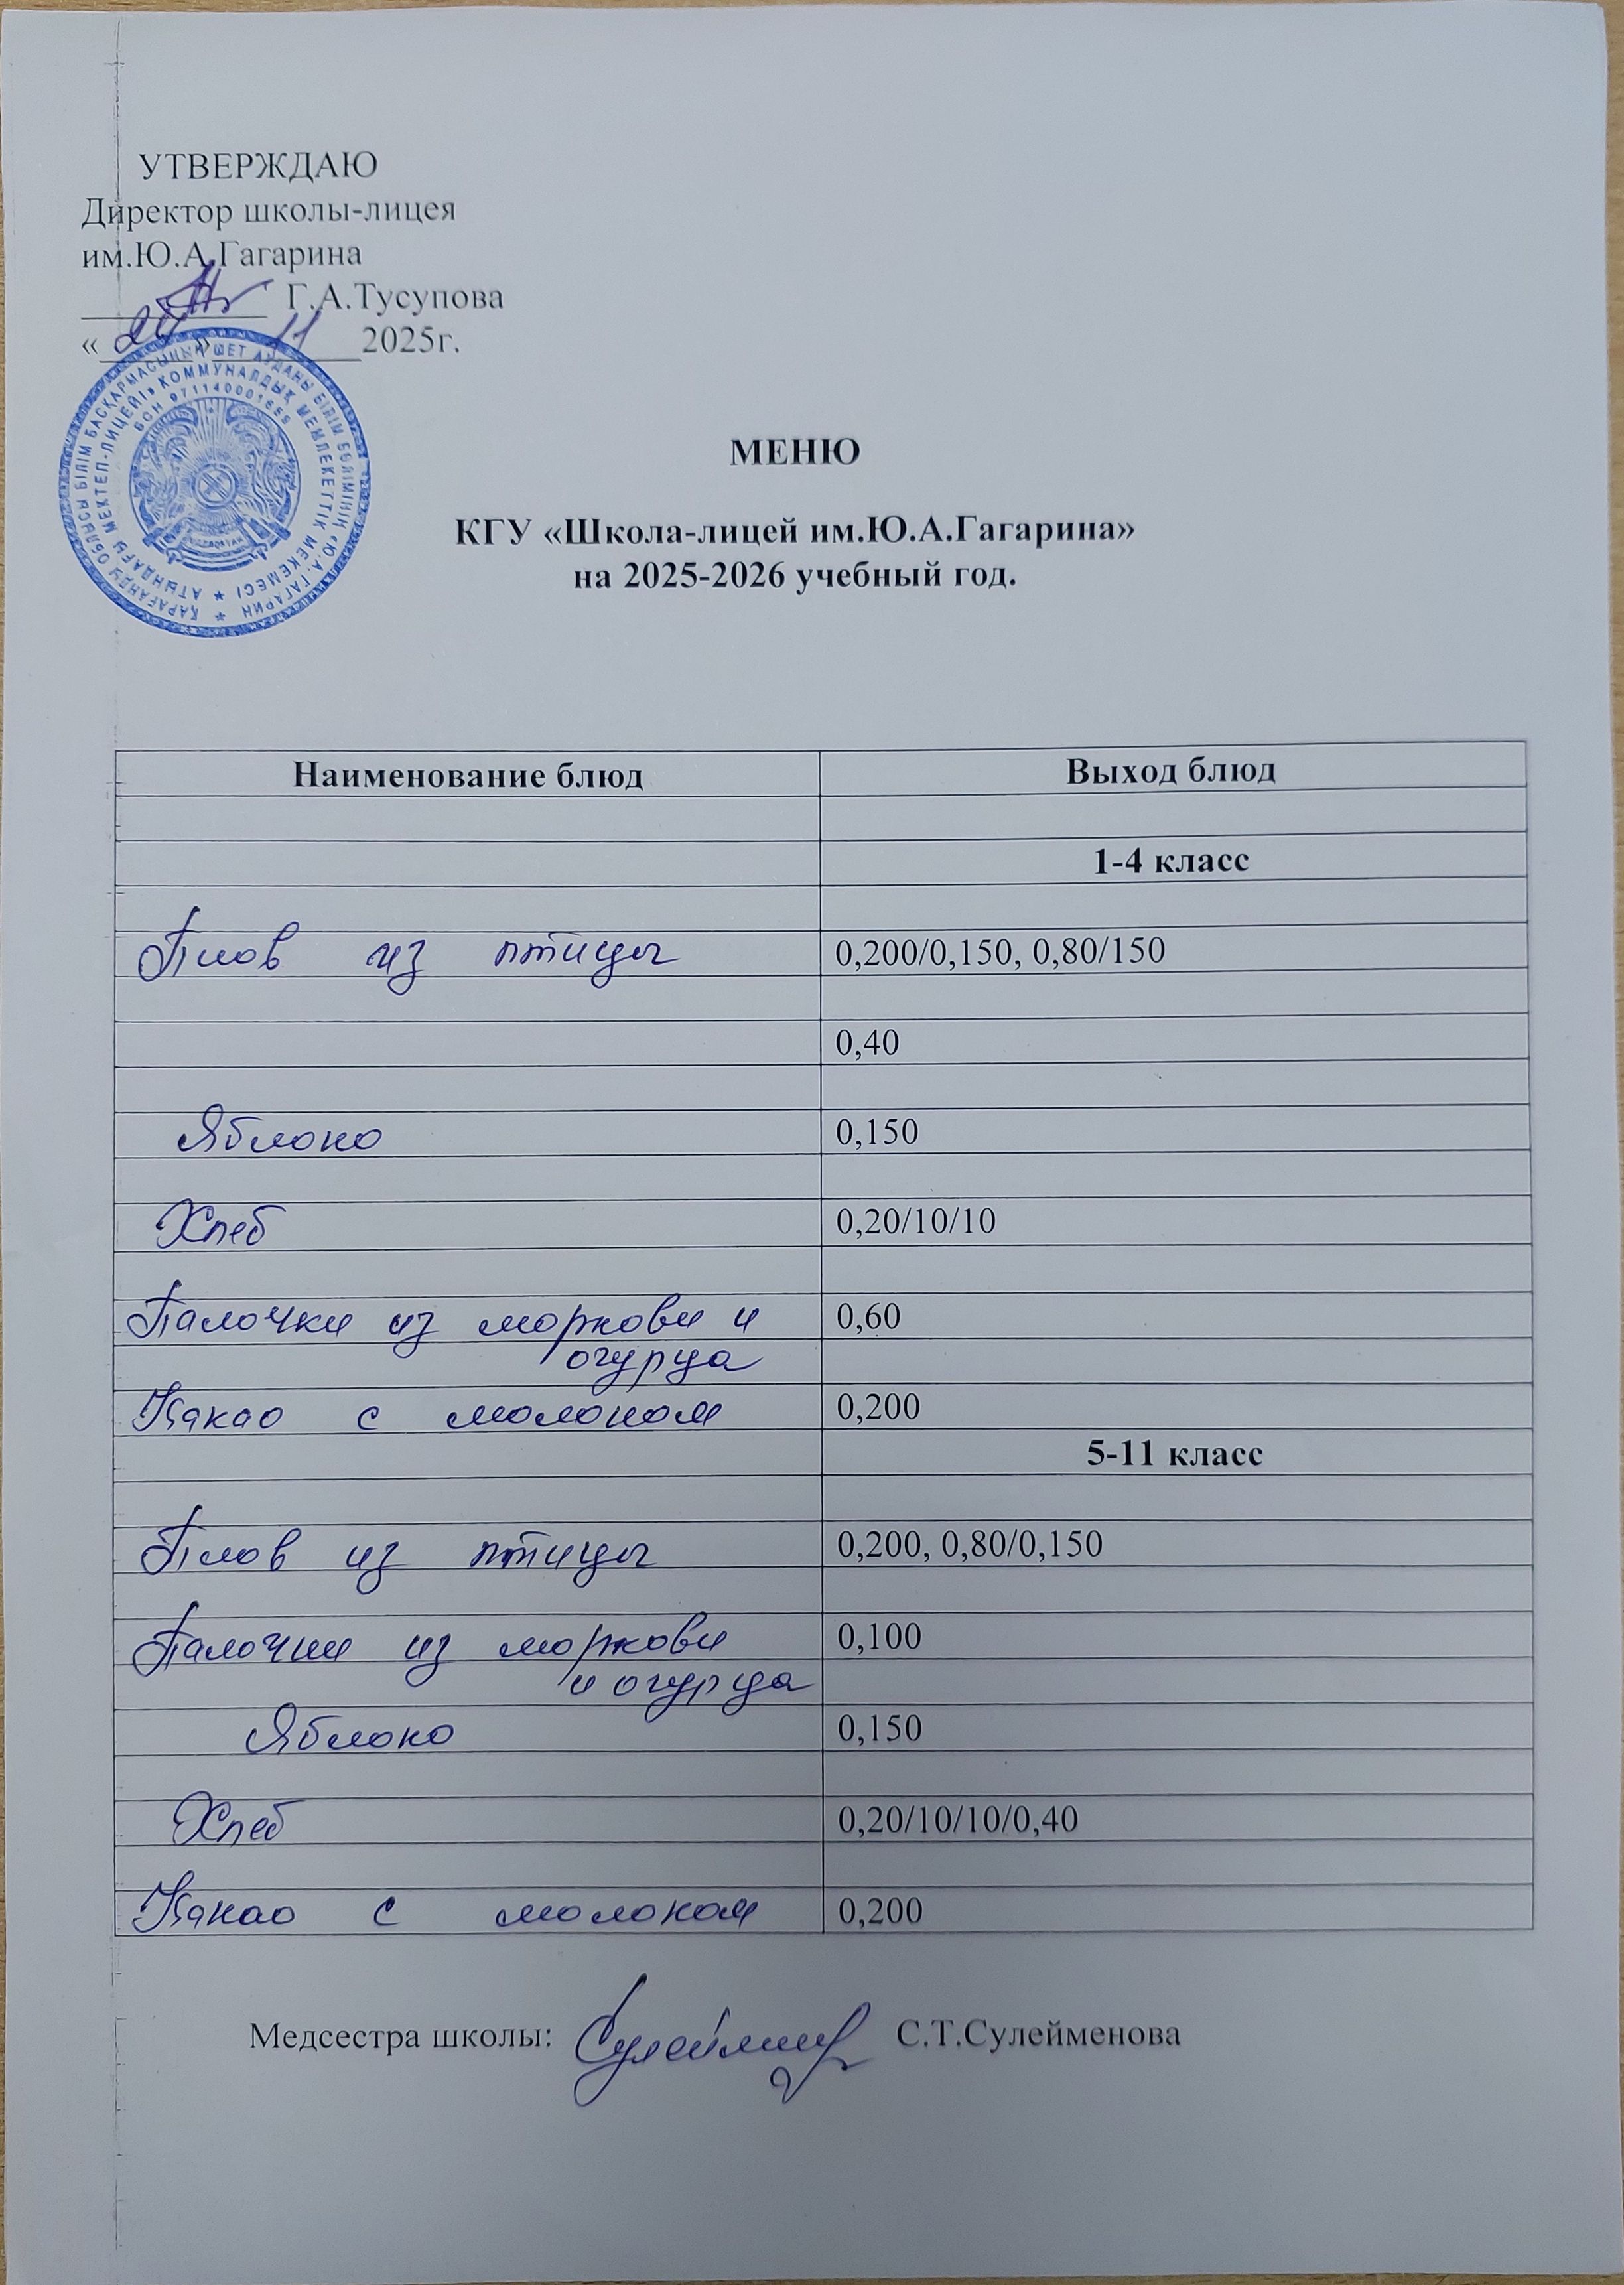 УТВЕРЖДАЮ
Директор школы-лицея
им.Ю.А.Гагарина
Г.А.Тусупова
« » 11 2025г.
ҚАРАҒАНДЫ ОБЛЫСЫ БІЛІМ БАСҚАРМАСЫНЫҢ ШЕТ АУДАНЫ БІЛІМ БӨЛІМІНІҢ «Ю.А.ГАГАРИН
АТЫНДАҒЫ МЕКТЕП-ЛИЦЕЙІ» КОММУНАЛДЫҚ МЕМЛЕКЕТТІК МЕКЕМЕСІ
БСН
МЕНЮ
КГУ «Школа-лицей им.Ю.А.Гагарина»
на 2025-2026 учебный год.
Наименование блюд Выход блюд
1-4 класс
Плов из птицы 0,200/0,150, 0,80/150
0,40
Яблоко 0,150
Хлеб 0,20/10/10
Палочки из моркови и 0,60
огурца
Какао с молоком 0,200
5-11 класс
Плов из птицы 0,200, 0,80/0,150
Палочки из моркови 0,100
и огурца
Яблоко 0,150
Хлеб 0,20/10/10/0,40
Какао с молоком 0,200
Медсестра школы: С.Т.Сулейменова